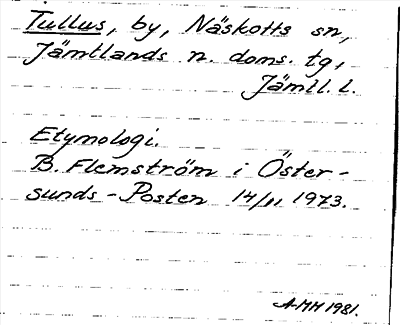 Tullus, by, Näskotts sn,
Jämtlands n. doms. tg,
Jämtl. l.
Etymologi.
B. Flemström i Öster-
sunds-Posten 14/11 1973.
A-MH 1981.